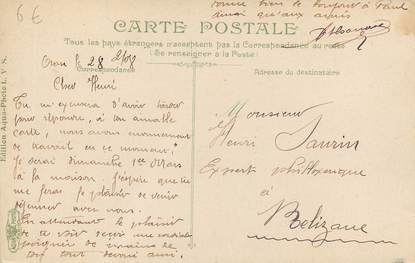 6€
bien le bonjour à tout
ainsi qu'aux amis
CARTE POSTALE
Tous les pays étrangers n'acceptent pas la Correspondance au recto
(Se renseigner à la Poste)
Correspondance
Adresse du destinataire
Edition Aqua-Photo L. V. S.
Oran le 28
Cher Henri
Tu m'excusera d'avoir tardé
pour répondre, à ton aimable
carte, nous avons énormément
de travail en ce moment.
Je serai dimanche 1er Mars
à la maison. J'espère que tu
me feras le plaisir de venir
déjeuner avec nous.
En attendant le plaisir
de te voir reçois une cordiale
poignée de mains de
ton tout dévoué ami.
Monsieur
Henri Saurin
Expert phylloxérique
à
Relizane